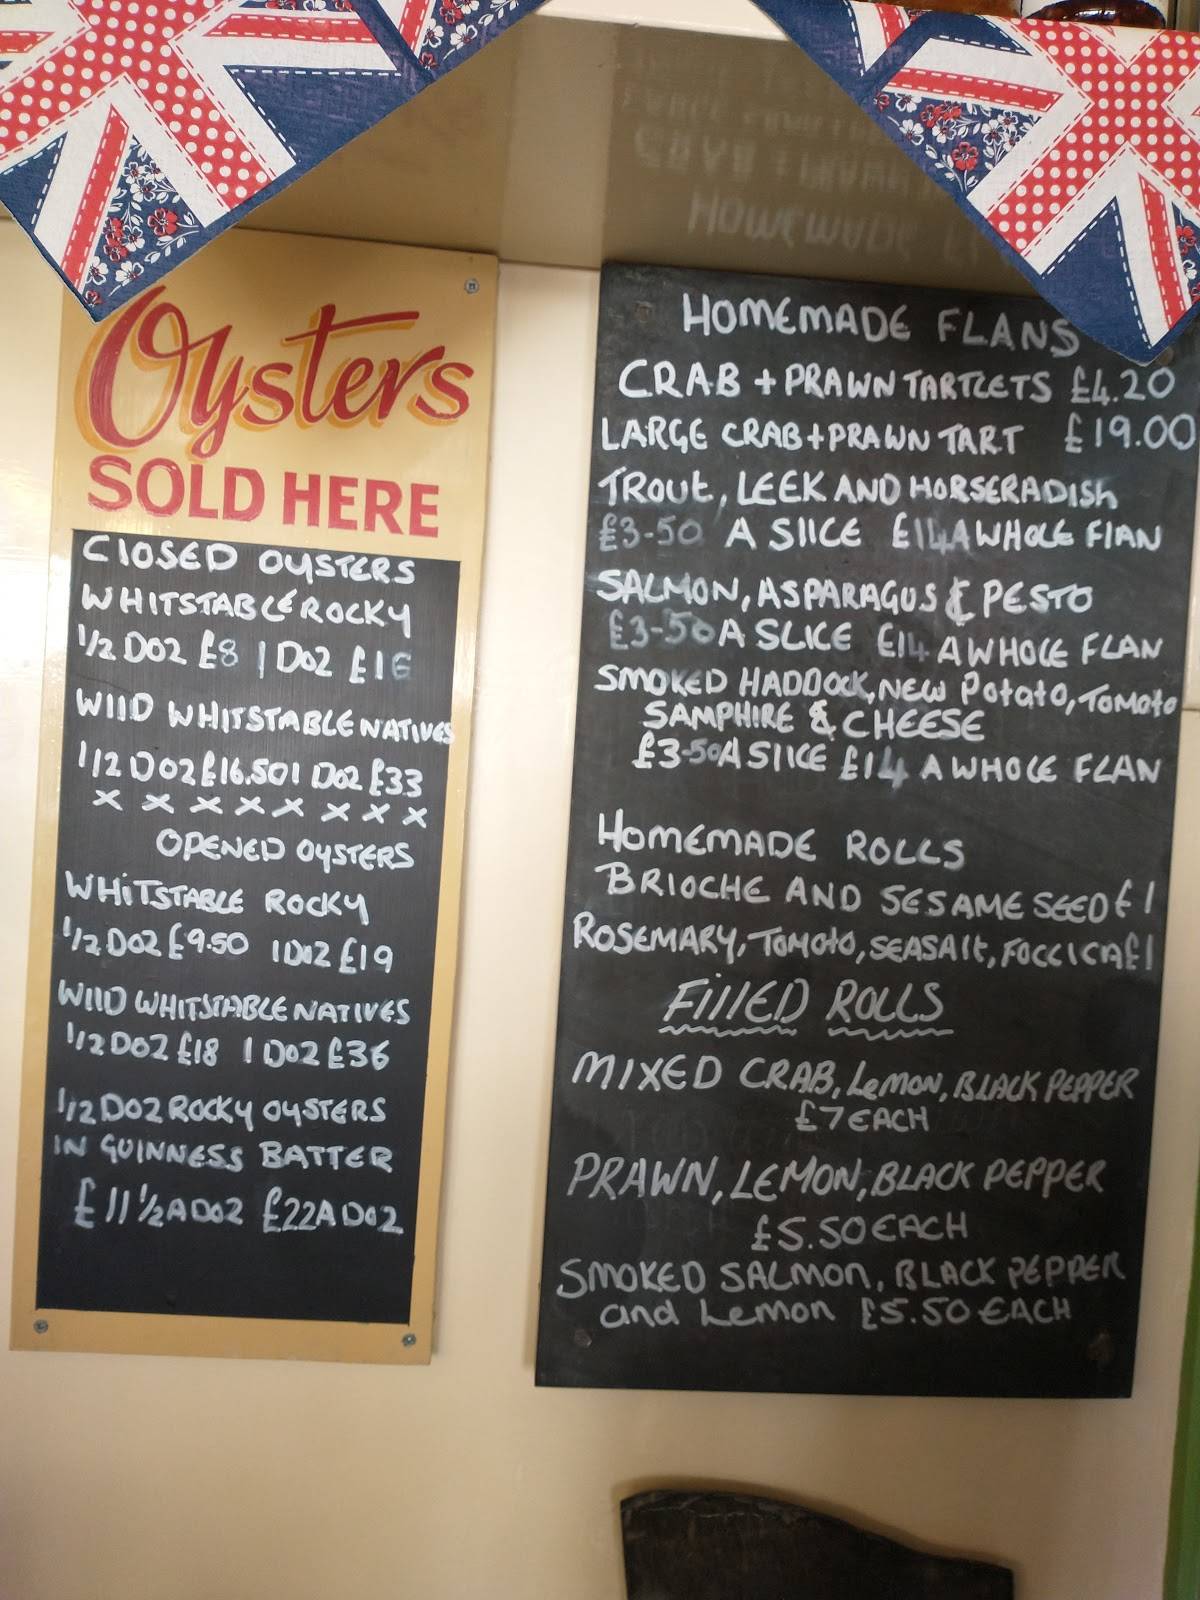 Oysters
SOLD HERE
ClOSED OYSTERS
WHITSTABLE ROCKY
1/2 DOZ £8 1 DOZ £16
WIlD WHITSTABLE NATIVES
1/2 DOZ £16.50 1 DOZ £33
x x x x x x x x
OPENED OYSTERS
WHITSTABLE ROCKY
1/2 DOZ £9.50 1 DOZ £19
WIlD WHITSTABLE NATIVES
1/2 DOZ £18 1 DOZ £36
1/2 DOZ ROCKY OYSTERS
IN GUINNESS BATTER
£11 1/2 A DOZ £22 A DOZ
HOMEMADE FLANS
CRAB + PRAWN TARTLETS £4.20
LARGE CRAB + PRAWN TART £19.00
TROUt, LEEK AND HORSERADISh
£3-50 A SlICE £14 A WHOLE FlAN
SALMON, ASPARAGUS & PESTO
£3-50 A SLICE £14 A WHOLE FLAN
SMOKED HADDOCK, NEW Potato, Tomato
SAMPHIRE & CHEESE
£3-50 A SlICE £14 A WHOLE FLAN
HOMEMADE ROLLS
BRIOCHE AND SESAME SEED £1
ROSEMARY, TOMOtO, SEASAlt, FOCCICA £1
FIllED ROLLS
MIXED CRAB, LeMON, BLACK PEPPER
£7 EACH
PRAWN, LEMON, BLACK PEPPER
£5.50 EACH
SMOKED SALMON, BLACK PEPPER
and Lemon £5.50 EACH